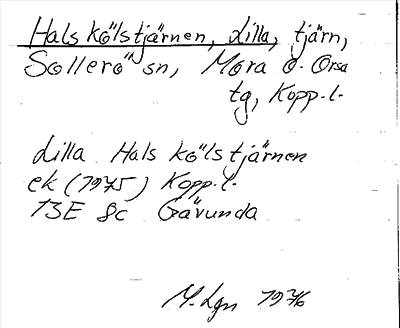 Halskölstjärnen, Lilla, tjärn,
Sollerö sn, Mora o. Orsa
tg, Kopp. l.
Lilla Halskölstjärnen
ek (1975) Kopp. l.
13E 8c Gävunda
M. Lgn 1976